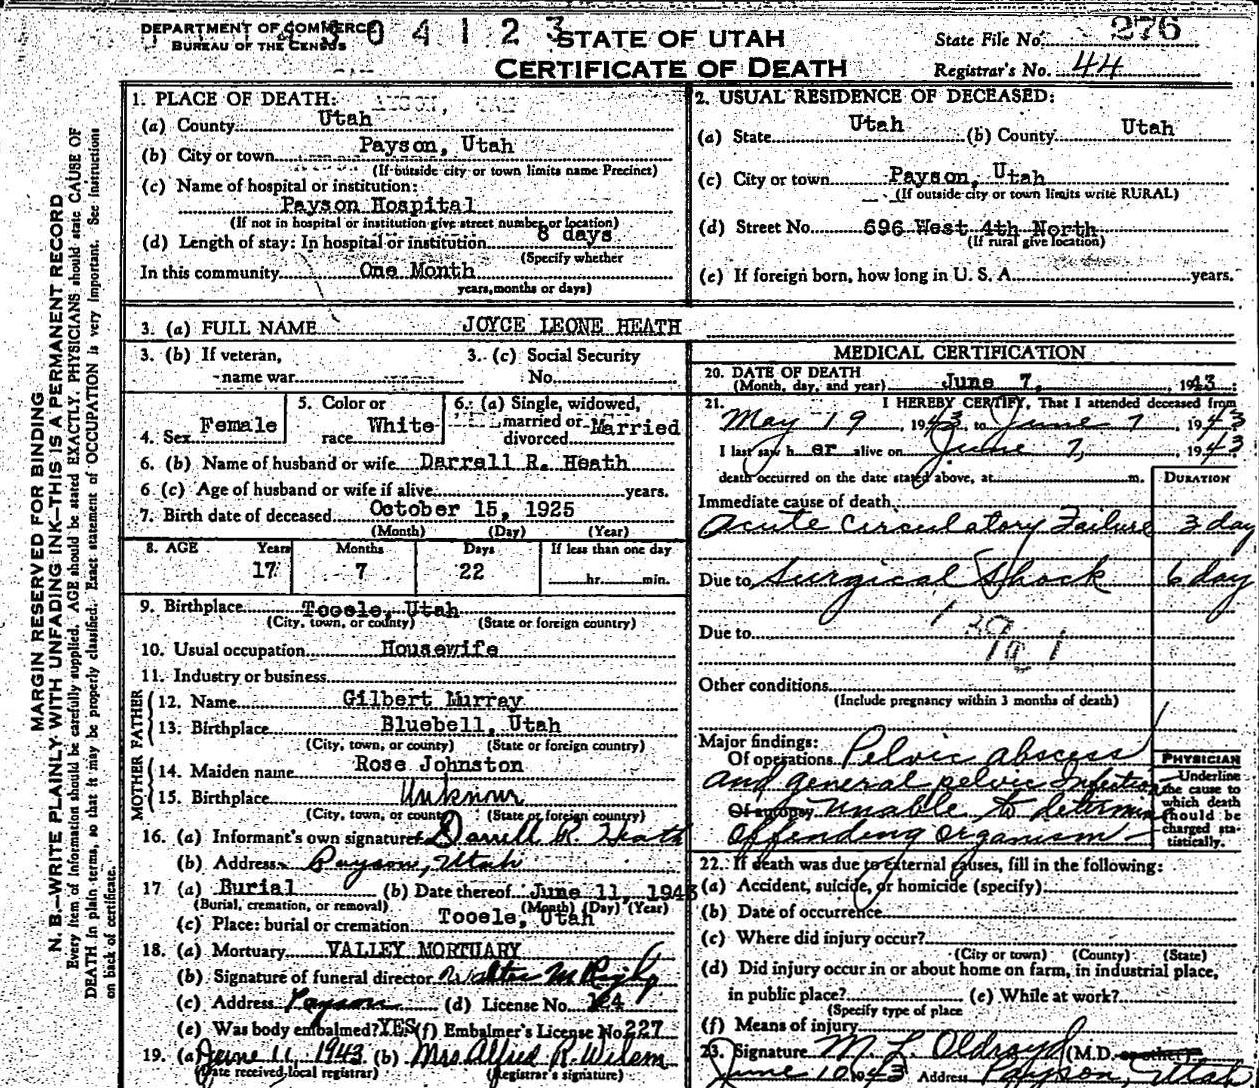 DEPARTMENT OF COMMERCE
BUREAU OF THE CENSUS
4 3 0 4 1 2 3
STATE OF UTAH
CERTIFICATE OF DEATH
State File No. 276
Registrar's No. 44
MARGIN RESERVED FOR BINDING
N. B.—WRITE PLAINLY WITH UNFADING INK—THIS IS A PERMANENT RECORD
Every item of information should be carefully supplied. AGE should be stated EXACTLY. PHYSICIANS should state CAUSE OF
DEATH in plain terms, so that it may be properly classified. Exact statement of OCCUPATION is very important. See instructions
on back of certificate.
1. PLACE OF DEATH:
(a) County Utah
(b) City or town Payson, Utah
(If outside city or town limits name Precinct)
(c) Name of hospital or institution:
Payson Hospital
(If not in hospital or institution give street number or location)
(d) Length of stay: In hospital or institution 8 days
(Specify whether
In this community One Month
years, months or days)
2. USUAL RESIDENCE OF DECEASED:
(a) State Utah (b) County Utah
(c) City or town Payson, Utah
(If outside city or town limits write RURAL)
(d) Street No. 696 West 4th North
(If rural give location)
(e) If foreign born, how long in U. S. A. years.
3. (a) FULL NAME JOYCE LEONE HEATH
3. (b) If veteran,
name war
3. (c) Social Security
No.
4. Sex Female
5. Color or
race White
6. (a) Single, widowed,
married or
divorced Married
6. (b) Name of husband or wife Darrell R. Heath
6 (c) Age of husband or wife if alive years.
7. Birth date of deceased October 15, 1925
(Month) (Day) (Year)
8. AGE Years Months Days If less than one day
17 7 22 hr. min.
9. Birthplace Tooele, Utah
(City, town, or county) (State or foreign country)
10. Usual occupation Housewife
11. Industry or business
FATHER
12. Name Gilbert Murray
13. Birthplace Bluebell, Utah
(City, town, or county) (State or foreign country)
MOTHER
14. Maiden name Rose Johnston
15. Birthplace Unknown
(City, town, or county) (State or foreign country)
16. (a) Informant's own signature Darrell R. Heath
(b) Address Payson, Utah
17 (a) Burial (b) Date thereof June 11, 1943
(Burial, cremation, or removal) (Month) (Day) (Year)
(c) Place: burial or cremation Tooele, Utah
18. (a) Mortuary VALLEY MORTUARY
(b) Signature of funeral director Walter M Rigby
(c) Address Payson (d) License No.
(e) Was body embalmed? YES (f) Embalmer's License No 227
19. (a) June 11, 1943 (b) Mrs Alfred R. Wilson
(Date received local registrar) (Registrar's signature)
MEDICAL CERTIFICATION
20. DATE OF DEATH
(Month, day, and year) June 7, 1943
21. I HEREBY CERTIFY, That I attended deceased from
May 19, 1943, to June 7, 1943
I last saw h er alive on June 7, 1943
death occurred on the date stated above, at m.
DURATION
Immediate cause of death
Acute Circulatory Failure 3 day
Due to Surgical Shock 6 day
Due to
Other conditions
(Include pregnancy within 3 months of death)
Major findings:
Of operations Pelvic abscess
and general pelvic infection
Of autopsy unable to determine
offending organism
PHYSICIAN
Underline
the cause to
which death
should be
charged sta-
tistically.
22. If death was due to external causes, fill in the following:
(a) Accident, suicide, or homicide (specify)
(b) Date of occurrence
(c) Where did injury occur?
(City or town) (County) (State)
(d) Did injury occur in or about home on farm, in industrial place,
in public place? (e) While at work?
(Specify type of place
(f) Means of injury
23. Signature M. L. Oldroyd (M.D. or other)
June 10 1943 Address Payson Utah